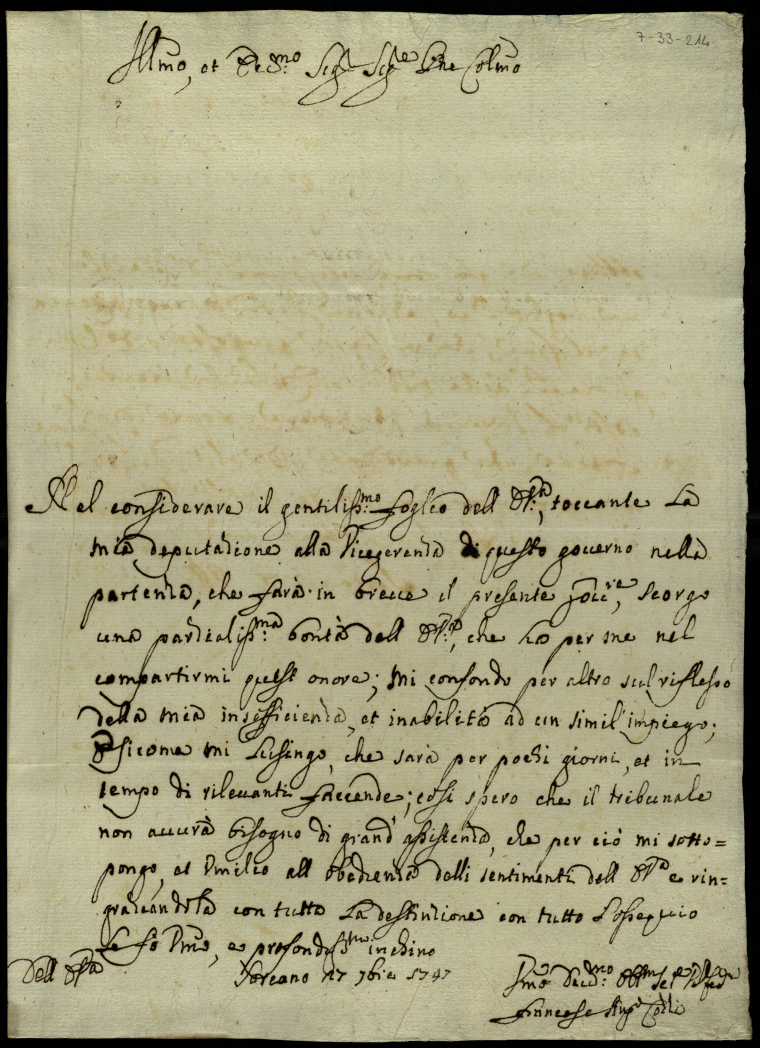 7-33-214.
Illmo, et Sig.r Sig.e Pne Colmo
Nel considerare il gentiliss.mo foglio dell, toccante La
mia deputazione alla Vicegerenza di questo governo nella
partenza, che farà in breve il presente, scorgo
una parzialiss.ma bontà dell, che ha per me nel
compartirmi quest onore; mi confondo per altro sul riflesso
della mia insufficienza, et inabilità ad un simil impiego;
siccome mi Lusingo, che sarà per pochi giorni, et in
tempo di rilevanti faccende; cosi spero che il tribunale
non avvrà bisogno di grand assistenza, che per ciò mi sotto=
pongo, et Umilio all obedienza delli sentimenti dell e rin=
graziandola con tutta La destinzione con tutto L'ossequio
Le fò, e profondiss.mo inchino
Dell
17 9bre 1747
Francesc